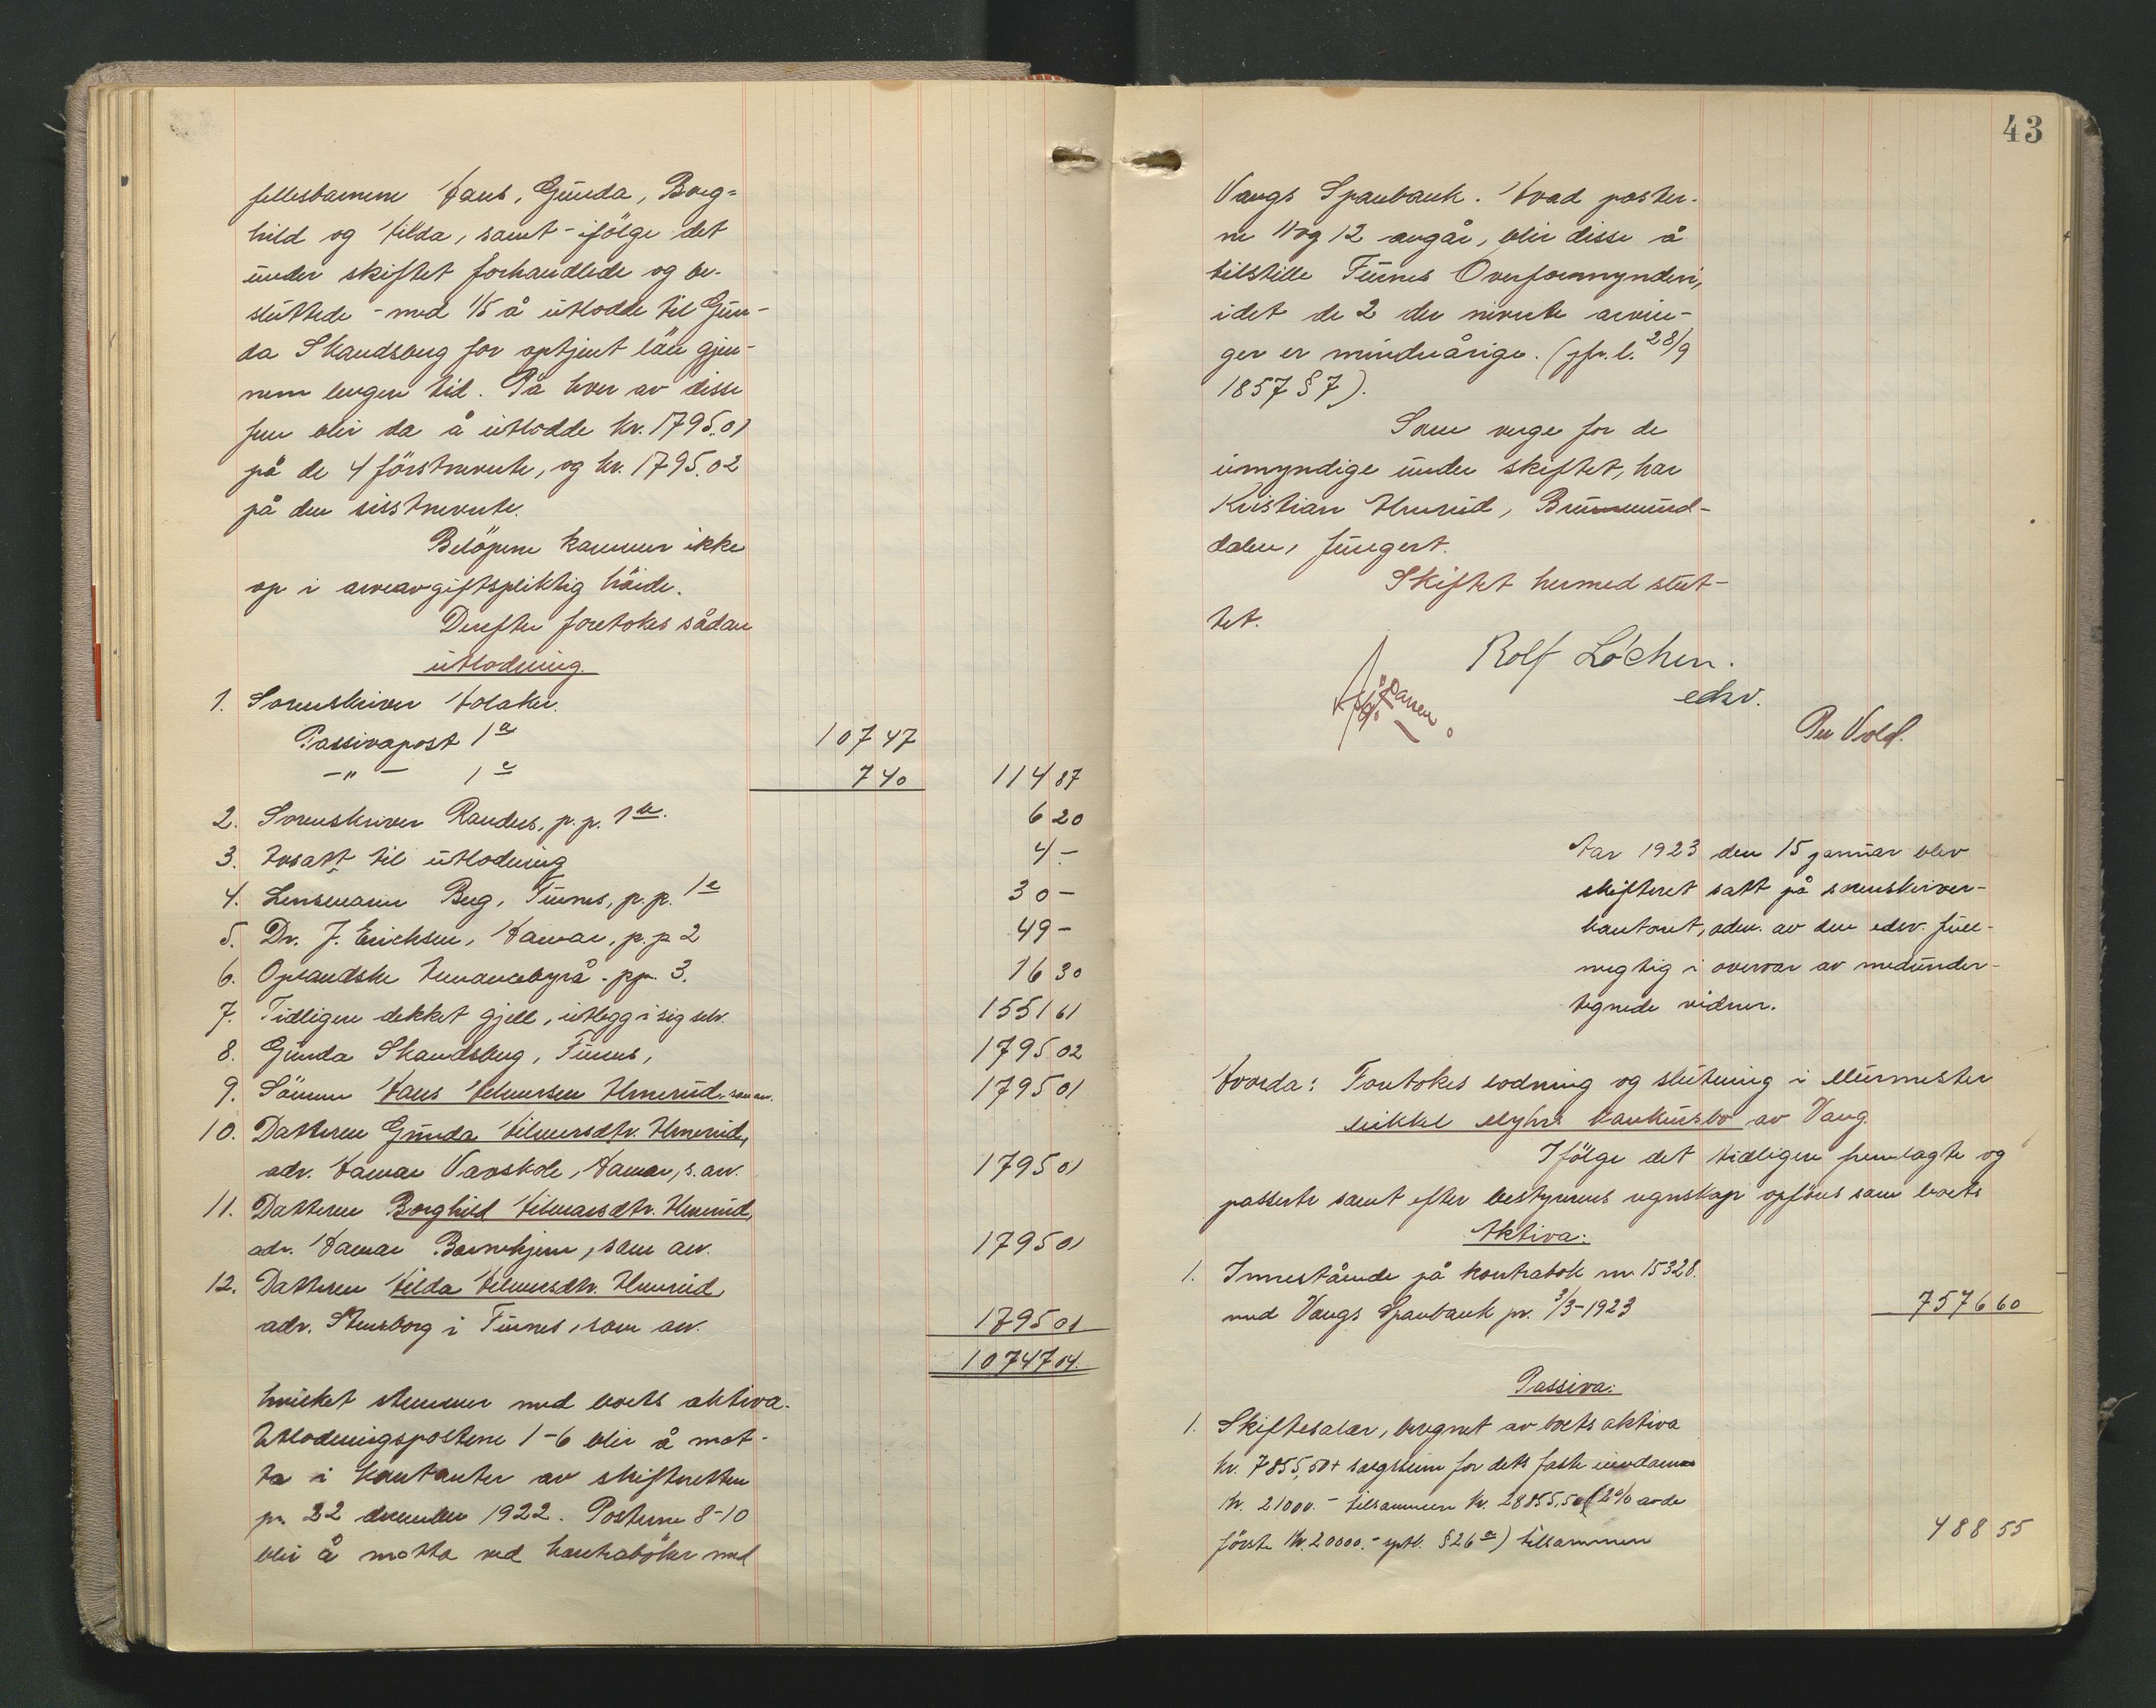 fellesbarnene Hans, Gunda, Borg-
hild og Hilda, samt - ifölge det
under skiftet forhandlede og be-
sluttede - med 1/5 å utlodde til Gun-
da Skandsberg for optjent lön gjen-
nem lengere tid. På hver av disse
fem blir da å utlodde kr. 1795.01
på de 4 förstnevnte, og kr. 1795.02
på den sistnevnte.
Belöpene kommer ikke
op i arveavgiftspliktig höide.
Derefter foretokes sådan
utlodning.
1. Sorenskriver Holaker.
Passivapost 1a 107 47
-"- 1c 7 40 114 87
2. Sorenskriver Randers, p.p. 1b. 6 20
3. Avsatt til utlodning 4 -
4. Lensmann Berg, Furnes, p.p. 1e 30 -
5. Dr. J. Erichsen, Hamar, p.p 2 49 -
6. Oplandske pp. 3. 16 30
7. Tidligere dekket gjell, utlegg i sig selv. 1551 61
8. Gunda Skandsberg, Furnes, 1795 02
9. Sönnen Hans Hilmersen Hmerud, som arv. 1795 01
10. Datteren Gunda Hilmersdtr. Hmerud,
adr. Hamar Vaskole, Hamar, s. arv. 1795 01
11. Datteren Borghild Hilmersdtr. Hmerud,
adr. Hamar Barnehjem, som arv. 1795 01
12. Datteren Hilda Hilmersdtr. Hmerud,
adr. Stensborg i Furnes, som arv. 1795 01
10747 04.
hvilket stemmer med boets aktiva.
Utlodningspostene 1-6 blir å mot-
ta i kontanter av skifteretten
pr. 22 december 1922. Postene 8-10
blir å motta ved kontraböker med
43
Vangs Sparebank. Hvad poster-
ne 11 og 12 angår, blir disse å
tilstille Furnes Overformynderi,
idet de 2 der nevnte arvin-
ger er mindreårige. (jfr. l. 28/9
1857 § 7).
Som verge for de
umyndige under skiftet, har
Kristian Hmerud, Brummund-
dalen, fungert.
Skiftet hermed slut-
tet.
Rolf Löchen.
edsv.
Per Vold.
Aar 1923 den 15 januar blev
skifteret satt på sorenskriver-
kontoret, adm. av den edsv. full-
megtig i overvær av medunder-
tegnede vidner.
Hvorda: Foretokes lodning og slutning i Murmester
Mikkel Myhrs konkursbo av Vang.
Ifölge det tidligere fremlagte og
passerte samt efter bestyrerens regnskap opföres som boets
Aktiva:
1. Innestående på kontrabok nr. 15328.
med Vangs Sparebank pr. 3/3-1923 7576 60
Passiva:
1. Skiftesalær, beregnet av boets aktiva
kr. 7855,50 + salgssum for dets faste eiendom
kr. 21000.- tilsammen kr. 28855,50 (2% av de
förste kr. 20000.- sptl. § 26 a) tilsammen 488 55